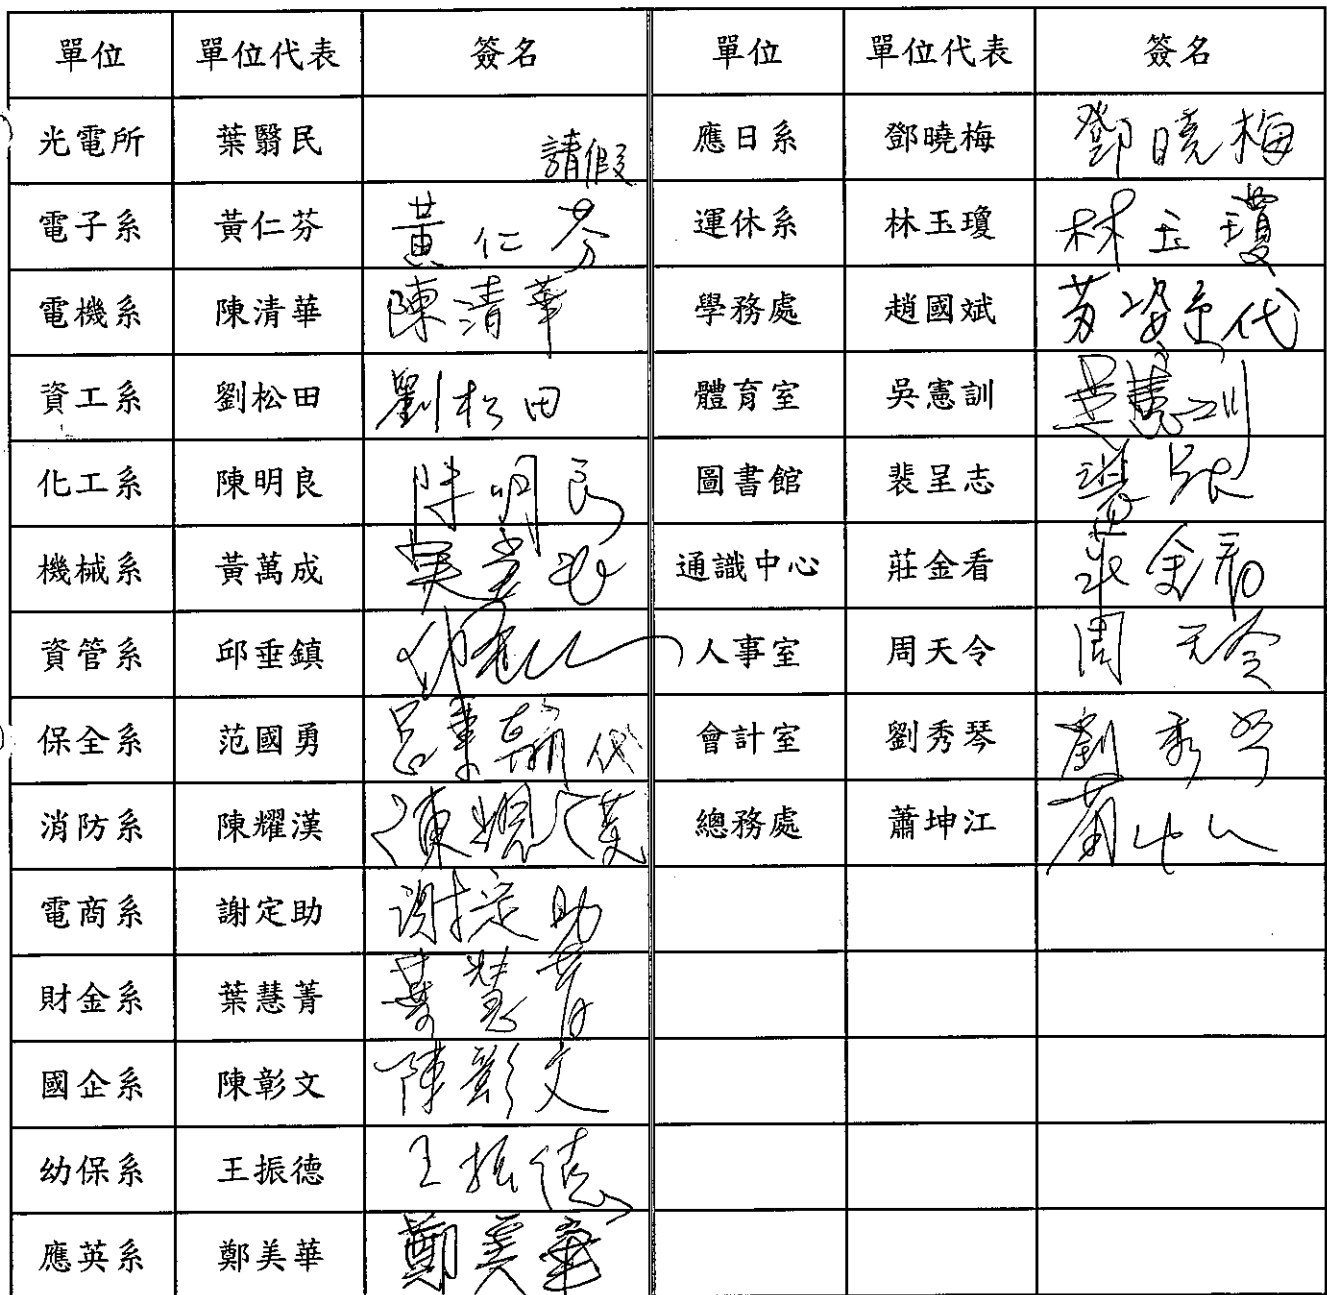 單位 單位代表 簽名 單位 單位代表 簽名
光電所 葉翳民 請假 應日系 鄧曉梅 鄧曉梅
電子系 黃仁芬 黃仁芬 運休系 林玉瓊 林玉瓊
電機系 陳清華 陳清華 學務處 趙國斌 代
資工系 劉松田 劉松田 體育室 吳憲訓 吳憲訓
化工系 陳明良 陳明良 圖書館 裴呈志
機械系 黃萬成 通識中心 莊金看 莊金看
資管系 邱垂鎮 人事室 周天令 周天令
保全系 范國勇 代 會計室 劉秀琴 劉秀琴
消防系 陳耀漢 陳耀漢 總務處 蕭坤江
電商系 謝定助 謝定助
財金系 葉慧菁 葉慧菁
國企系 陳彰文 陳彰文
幼保系 王振德 王振德
應英系 鄭美華 鄭美華